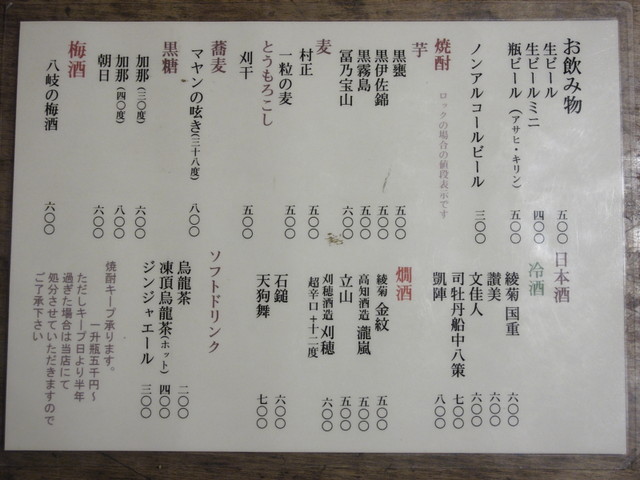 お飲み物
生ビール 五〇〇
生ビールミニ 四〇〇
瓶ビール(アサヒ・キリン) 五〇〇
ノンアルコールビール 三〇〇
焼酎 ロックの場合の値段表示です
芋
黒甕 五〇〇
黒伊佐錦 五〇〇
黒霧島 五〇〇
冨乃宝山 六〇〇
麦
村正 五〇〇
一粒の麦 五〇〇
とうもろこし
刈干 五〇〇
蕎麦
マヤンの呟き(三十八度) 八〇〇
黒糖
加那(三〇度) 六〇〇
加那(四〇度) 八〇〇
朝日 六〇〇
梅酒
八岐の梅酒 六〇〇
日本酒
冷酒
綾菊 国重 六〇〇
讃美 六〇〇
文佳人 六〇〇
司牡丹船中八策 七〇〇
凱陣 八〇〇
燗酒
綾菊 金紋 五〇〇
高知酒造 瀧嵐 五〇〇
立山 五〇〇
刈穂酒造 刈穂
超辛口+十二度 六〇〇
石鎚 六〇〇
天狗舞 七〇〇
ソフトドリンク
烏龍茶 二〇〇
凍頂烏龍茶(ホット) 四〇〇
ジンジャエール 三〇〇
焼酎キープ承ります。
一升瓶五千円~
ただしキープ日より半年
過ぎた場合は当店にて
処分させていただきますので
ご了承下さい